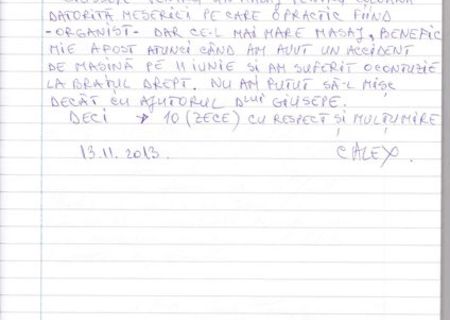 DATORITĂ MESERICI PE CARE O PRACTIC FIIND
-ORGANIST- DAR CEL MAI MARE MASAJ, BENEFIC
MIE A POST ATUNCI CÂND AM AVUT UN ACCIDENT
DE MAȘINĂ PE 11 IUNIE SI AM SUFERIT O CONTUZIE
LA BRAȚUL DREPT. NU AM PUTUT SĂ-L MIȘC
DECÂT CU AJUTORUL DLUI GIUSEPE.
DECI → 10 (ZECE) CU RESPECT ȘI MULȚUMIRE
13.11.2013.
CALEX.